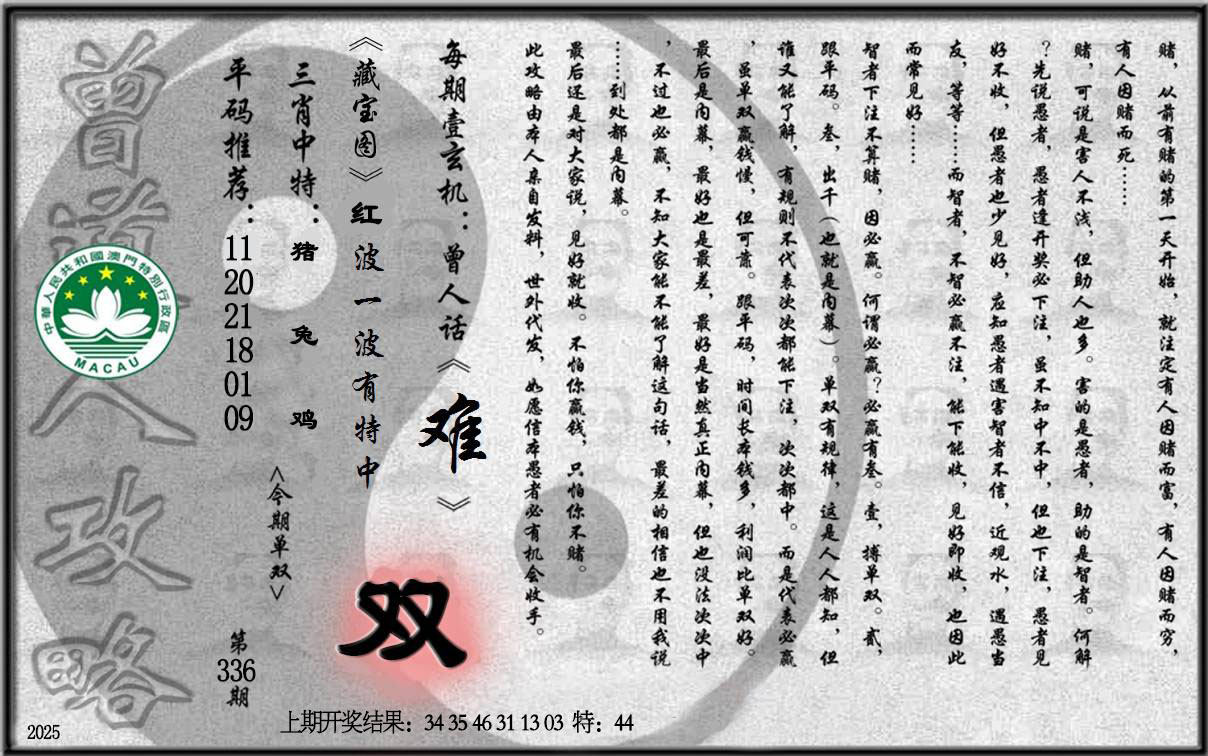 赌，从前有赌的第一天开始，就注定有人因赌而富，有人因赌而穷，
有人因赌而死……
赌，可说是害人不浅，但助人也多。害的是愚者，助的是智者。何解
？先说愚者，愚者逢开奖必下注，虽不知中不中，但也下注，愚者见
好不收，但愚者也少见好，应知愚者遇害智者不信，近观水，遇愚当
友，等等……而智者，不智必赢不注，能下能收，见好即收，也因此
而常见好……
智者下注不算赌，因必赢。何谓必赢？必赢有叁。壹，搏单双。贰，
跟平码。叁，出千（也就是内幕）。单双有规律，这是人人都知，但
谁又能了解，有规则不代表次次都能下注，次次都中。而是代表必赢
，虽单双赢钱慢，但可靠。跟平码，时间长本钱多，利润比单双好。
最后是内幕，最好也是最差，最好是当然真正内幕，但也没法次次中
，不过也必赢，不知大家能不能了解这句话，最差的相信也不用我说
……到处都是内幕。
最后还是对大家说，见好就收。不怕你赢钱，只怕你不赌。
此攻略由本人亲自发料，世外代发，如愿信本愚者必有机会收手。
每期壹玄机：曾人话《难》
《藏宝图》红波一波有特中
双
三肖中特：猪 兔 鸡
<今期单双>
平码推荐：11 20 21 18 01 09
第336期
曾道人攻略
中華人民共和國澳門特別行政區
MACAU
上期开奖结果：34 35 46 31 13 03 特：44
2025